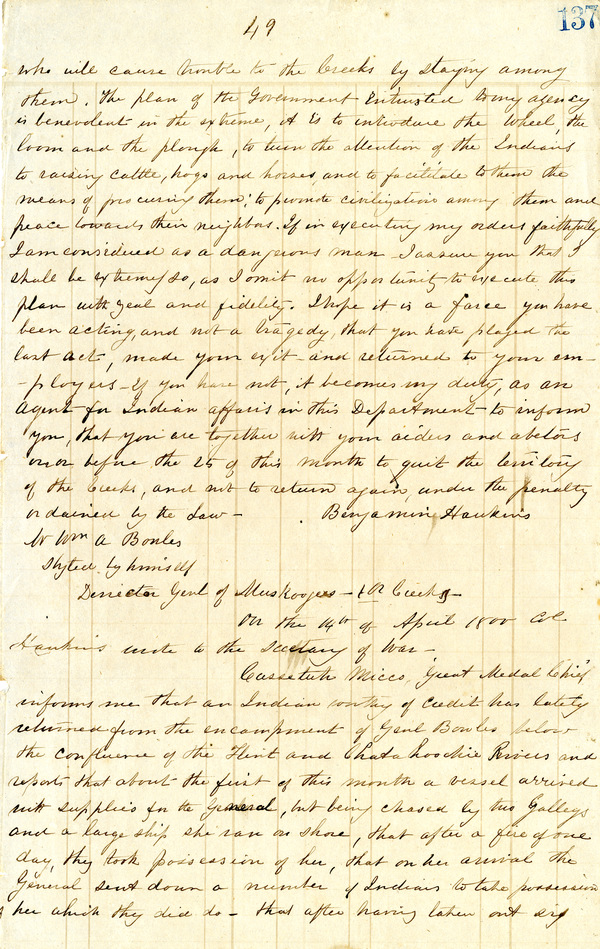 49
137
who will cause trouble to the Creeks by staying among
them. The plan of the Government Entrusted to my agency
is benevolent in the extreme, it is to introduce the wheel, the
loom and the plough, to turn the attention of the Indians
to raising cattle, hogs and horses, and to facilitate to them the
means of procuring them; to promote civilization among them and
peace towards their neighbors. If in executing my orders faithfully
I am considered as a dangerous man I assure you that I
shall be extremely so, as I omit no opportunity to execute this
plan with zeal and fidelity. I hope it is a farce you have
been acting, and not a tragedy, that you have played the
last act, made your exit - and returned to your em-
-ployers - If you have not, it becomes my duty, as an
agent for Indian affairs in this Department to inform
you, that you are together with your aiders and abetors
on or before the 25 of this month to quit the territory
of the Creeks, and not to return again, under the penalty
ordained by the Law - Benjamin Hawkins
Mr Wm A Bowles
Styled by himself
Director Genl of Muskogee - or Creeks -
On the 14th of April 1800 Col
Hawkins wrote to the Secretary of War -
Cassetuh Micco, "Great Medal Chief"
informs me that an Indian worthy of credit has lately
returned from the encampment of Genl Bowles below
the confluence of the Flint and Chatahoochie Rivers and
reports that about the first of this month a vessel arrived
with supplies for the General, but being chased by two Galleys
and a large ship she ran on shore, that after a fire of one
day, they took possession of her, that on her arrival the
General sent down a number of Indians to take possession
of her which they did do - that after having taken out six